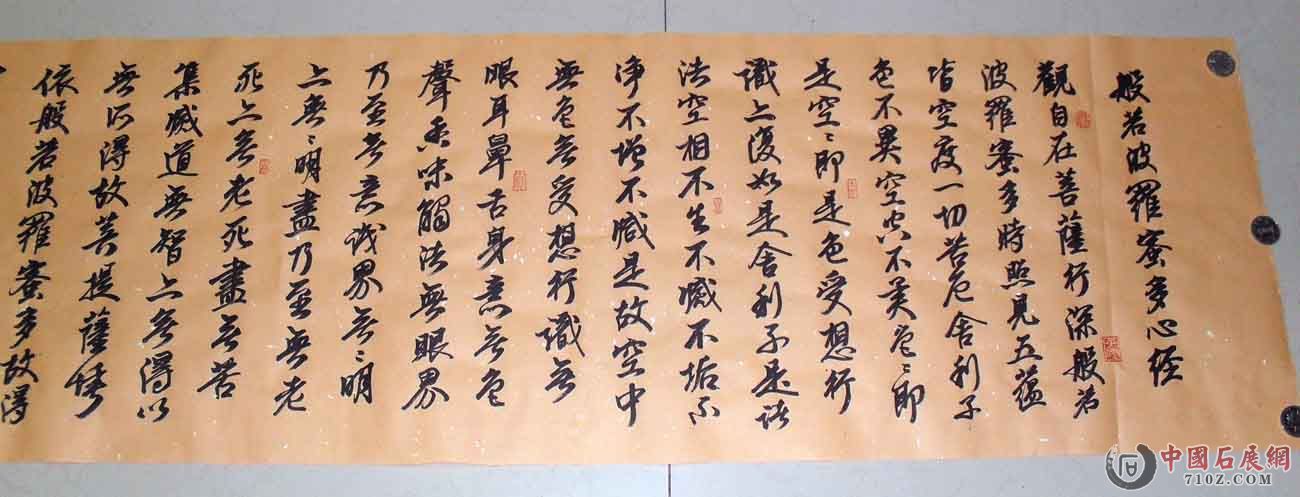 般若波羅蜜多心经
觀自在菩薩行深般若
波羅蜜多時照見五蕴
皆空度一切苦厄舍利子
色不異空空不異色〻即
是空〻即是色受想行
識亦復如是舍利子是诸
法空相不生不滅不垢不
净不增不減是故空中
無色無受想行識無
眼耳鼻舌身意無色
聲香味觸法無眼界
乃至無意识界無〻明
亦無〻明盡乃至無老
死亦無老死盡無苦
集滅道無智亦無得以
無所得故菩提薩埵
依般若波羅蜜多故得
中國石展網
710Z.COM